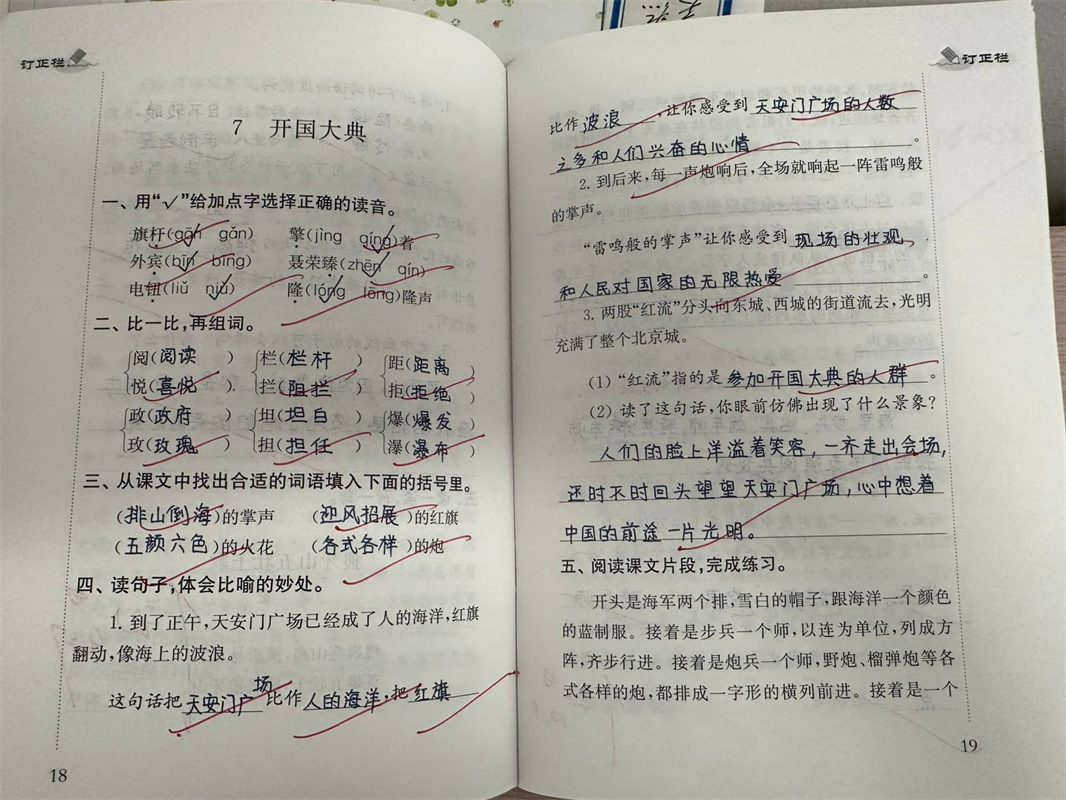 订正栏
7 开国大典
一、用“√”给加点字选择正确的读音。
旗杆(gān gǎn) 擎(jìng qíng)着
外宾(bīn bīng) 聂荣臻(zhēn qín)
电钮(liǔ niǔ) 隆(lóng lōng)隆声
二、比一比，再组词。
阅(阅读) 栏(栏杆) 距(距离)
悦(喜悦) 拦(阻拦) 拒(拒绝)
政(政府) 坦(坦白) 爆(爆发)
玫(玫瑰) 担(担任) 瀑(瀑布)
三、从课文中找出合适的词语填入下面的括号里。
(排山倒海)的掌声 (迎风招展)的红旗
(五颜六色)的火花 (各式各样)的炮
四、读句子，体会比喻的妙处。
1. 到了正午，天安门广场已经成了人的海洋，红旗
翻动，像海上的波浪。
这句话把天安门广场比作人的海洋，把红旗
18
订正栏
比作波浪，让你感受到天安门广场的人数
之多和人们兴奋的心情。
2. 到后来，每一声炮响后，全场就响起一阵雷鸣般
的掌声。
“雷鸣般的掌声”让你感受到现场的壮观
和人民对国家的无限热爱。
3. 两股“红流”分头向东城、西城的街道流去，光明
充满了整个北京城。
(1) “红流”指的是参加开国大典的人群。
(2) 读了这句话，你眼前仿佛出现了什么景象？
人们的脸上洋溢着笑容，一齐走出会场，
还时不时回头望望天安门广场，心中想着
中国的前途一片光明。
五、阅读课文片段，完成练习。
开头是海军两个排，雪白的帽子，跟海洋一个颜色
的蓝制服。接着是步兵一个师，以连为单位，列成方
阵，齐步行进。接着是炮兵一个师，野炮、榴弹炮等各
式各样的炮，都排成一字形的横列前进。接着是一个
19